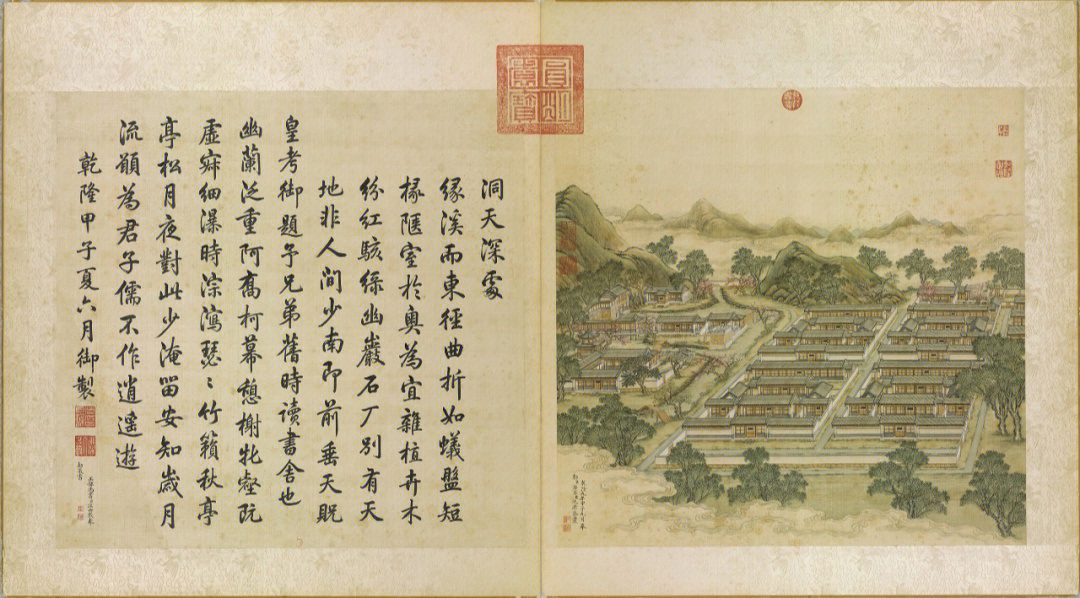 洞天深處
緣溪而東徑曲折如蟻盤短
椽陿室於奧為宜雜植卉木
紛紅駭綠幽巖石厂別有天
地非人間少南即前垂天貺
皇考御題予兄弟舊時讀書舍也
幽蘭泛重阿喬柯幕憩榭牝壑既
虛寂細瀑時淙瀉瑟〻竹籟秋亭
亭松月夜對此少淹留安知歲月
流願為君子儒不作逍遙遊
乾隆甲子夏六月御製